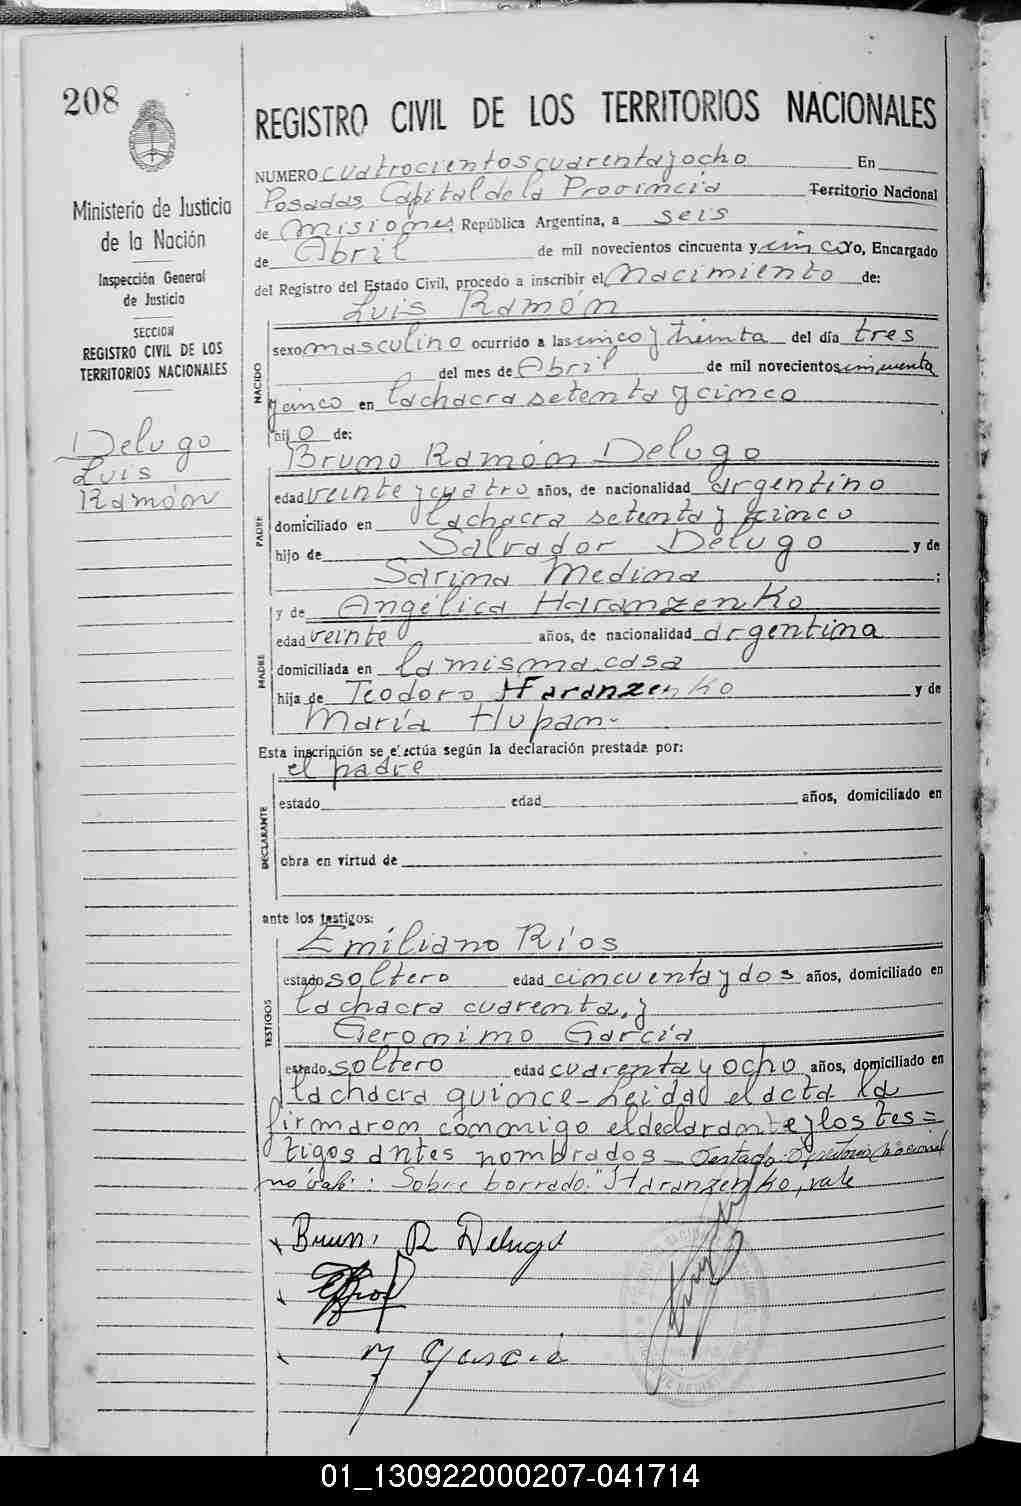 208
Ministerio de Justicia
de la Nación
Inspección General
de Justicia
SECCION
REGISTRO CIVIL DE LOS
TERRITORIOS NACIONALES
Delugo
Luis
Ramón
REGISTRO CIVIL DE LOS TERRITORIOS NACIONALES
NUMERO cuatrocientos cuarenta y ocho En
Posadas, Capital de la Provincia Territorio Nacional
de Misiones, República Argentina, a seis
de Abril de mil novecientos cincuenta y cinco Yo, Encargado
del Registro del Estado Civil, procedo a inscribir el Nacimiento de:
Luis Ramón
NACIDO
sexo masculino ocurrido a las cinco y treinta del día tres
del mes de Abril de mil novecientos cincuenta
y cinco en la chacra setenta y cinco
hijo de:
Bruno Ramón Delugo
PADRE
edad veinte y cuatro años, de nacionalidad argentino
domiciliado en la chacra setenta y cinco
hijo de Salvador Delugo y de
Sarina Medina ;
y de Angélica Haranzenko
MADRE
edad veinte años, de nacionalidad argentina
domiciliada en la misma casa
hija de Teodoro Haranzenko y de
María Hupan.
Esta inscripción se efectúa según la declaración prestada por:
el padre
DECLARANTE
estado edad años, domiciliado en
obra en virtud de
ante los testigos:
Emiliano Ríos
TESTIGOS
estado soltero edad cincuenta y dos años, domiciliado en
la chacra cuarenta, y
Geronimo García
estado soltero edad cuarenta y ocho años, domiciliado en
la chacra quince - Leida el acta la
firmaron conmigo el declarante y los tes=
tigos antes nombrados - Testado: Territorio Nacional
no vale: Sobre borrado: "Haranzenko, vale
Bruno R Delugo
García
01_130922000207-041714